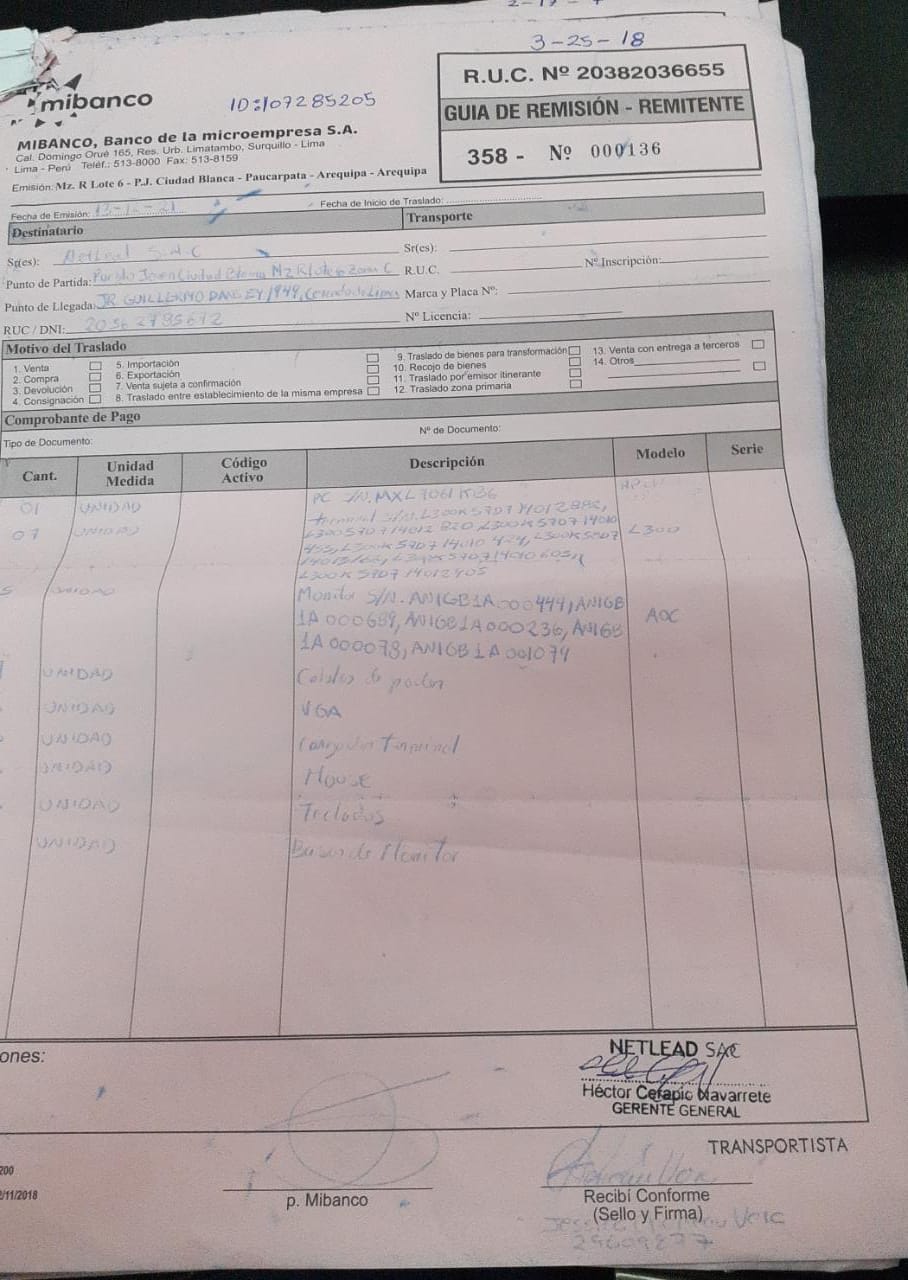 3-25-18
mibanco
ID:107285205
R.U.C. Nº 20382036655
GUIA DE REMISIÓN - REMITENTE
358 - Nº 000136
MIBANCO, Banco de la microempresa S.A.
Cal. Domingo Orué 165, Res. Urb. Limatambo, Surquillo - Lima
Lima - Perú Teléf.: 513-8000 Fax: 513-8159
Emisión: Mz. R Lote 6 - P.J. Ciudad Blanca - Paucarpata - Arequipa - Arequipa
Fecha de Emisión: Fecha de Inicio de Traslado:
Destinatario Transporte
Sr(es): Netlead S.A.C Sr(es):
Punto de Partida: Pueblo Joven Ciudad Blanca Mz R Lote 6 Zona C R.U.C. Nº Inscripción:
Punto de Llegada: JR GUILLERMO DANSEY 1944, Cercado de Lima Marca y Placa Nº:
RUC / DNI: 20562795672 Nº Licencia:
Motivo del Traslado
1. Venta 5. Importación 9. Traslado de bienes para transformación 13. Venta con entrega a terceros
2. Compra 6. Exportación 10. Recojo de bienes 14. Otros
3. Devolución 7. Venta sujeta a confirmación 11. Traslado por emisor itinerante
4. Consignación 8. Traslado entre establecimiento de la misma empresa 12. Traslado zona primaria
Comprobante de Pago
Tipo de Documento: Nº de Documento:
Cant. Unidad Medida Código Activo Descripción Modelo Serie
01 UNIDAD PC S/N. MXL7061KB6
07 UNIDAD terminal S/N. L300K570714012892,
L300 570714012 820, L300K570714010
L300K570714010 424, L300K5707
L300K570714010605,
L300K570714012405
L300
5 UNIDAD Monitor S/N. ANIGB1A000444, ANIGB
1A000689, ANIGB1A000236, ANIGB
1A000078, ANIGB1A001074
AOC
UNIDAD Cables de poder
UNIDAD VGA
UNIDAD Cargador Terminal
UNIDAD Mouse
UNIDAD Teclados
UNIDAD Bases de Monitor
ones:
NETLEAD SAC
Héctor Cerapio Navarrete
GERENTE GENERAL
TRANSPORTISTA
200
/11/2018
p. Mibanco
Recibí Conforme
(Sello y Firma)
29609877